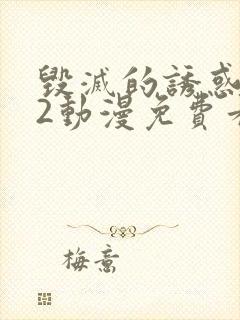 毀滅的誘惑
2動漫免費
梅意